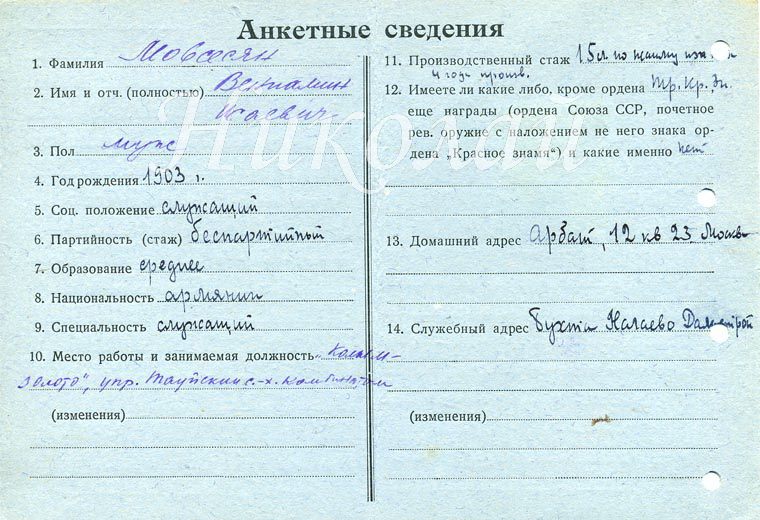 Анкетные сведения
1. Фамилия Мовсесян
2. Имя и отч. (полностью) Вениамин
Исаевич
3. Пол муж
4. Год рождения 1903 г.
5. Соц. положение служащий
6. Партийность (стаж) беспартийный
7. Образование среднее
8. Национальность армянин
9. Специальность служащий
10. Место работы и занимаемая должность „Колым-
золото", упр. Тауйским с.-х. комбинатом
(изменения)
11. Производственный стаж 15 л по
4 года произв.
12. Имеете ли какие либо, кроме ордена Тр. Кр. Зн.
еще награды (ордена Союза ССР, почетное
рев. оружие с наложением не него знака ор-
дена „Красное знамя") и какие именно нет
13. Домашний адрес Арбат, 12 кв 23, Москва
14. Служебный адрес Бухта Нагаево Дальстрой
(изменения)
Николай